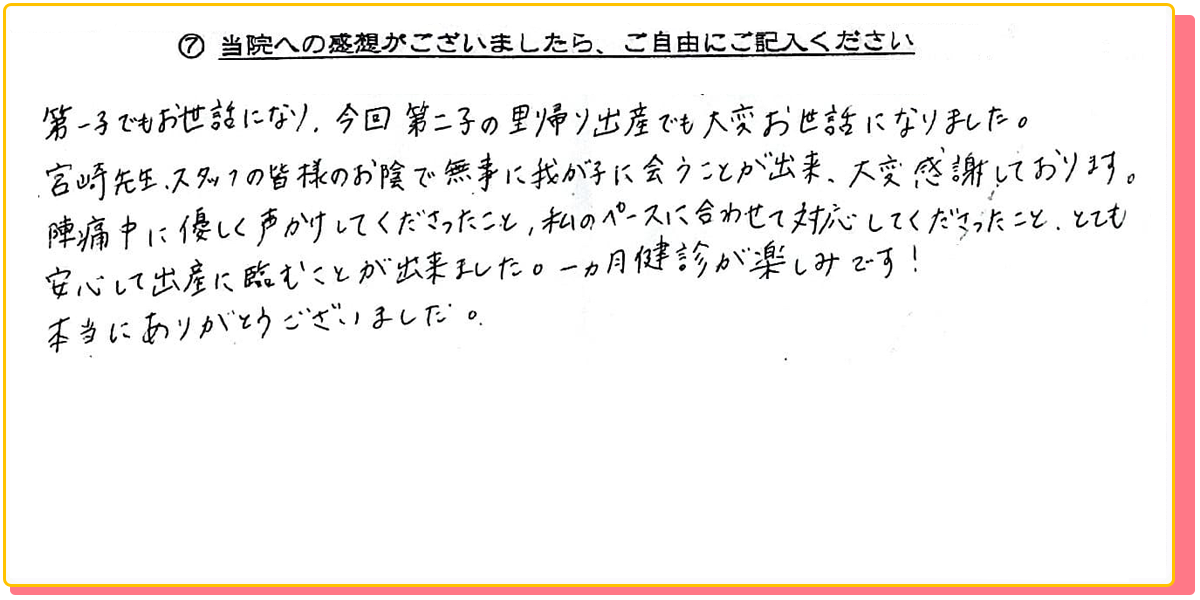 ⑦ 当院への感想がございましたら、ご自由にご記入ください
第一子でもお世話になり、今回第二子の里帰り出産でも大変お世話になりました。
宮崎先生、スタッフの皆様のお陰で無事に我が子に会うことが出来、大変感謝しております。
陣痛中に優しく声かけしてくださったこと、私のペースに合わせて対応してくださったこと、とても
安心して出産に臨むことが出来ました。一ヵ月健診が楽しみです!
本当にありがとうございました。